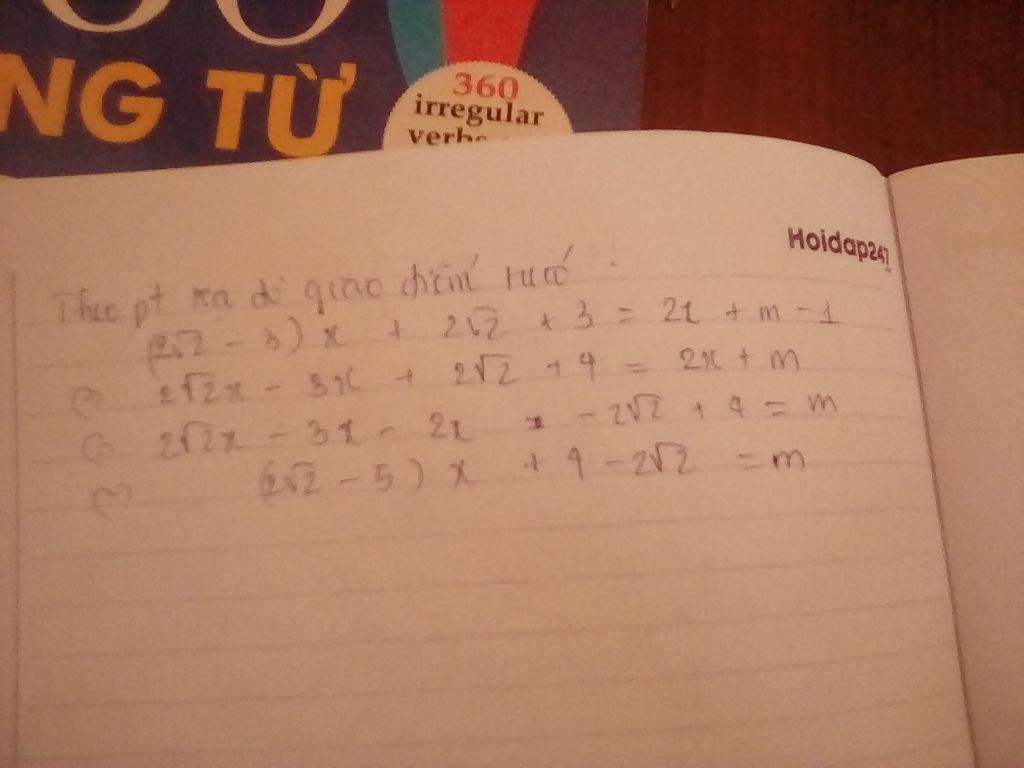 NG TỪ
360
irregular
verbs
Hoidap247
Theo pt giao điểm
(2√2 - 3) x + 2√2 + 3 = 2x + m - 1
(=) 2√2x - 3x + 2√2 + 4 = 2x + m
(=) 2√2x - 3x - 2x - 2√2 + 4 = m
(=) (2√2 - 5) x + 4 - 2√2 = m